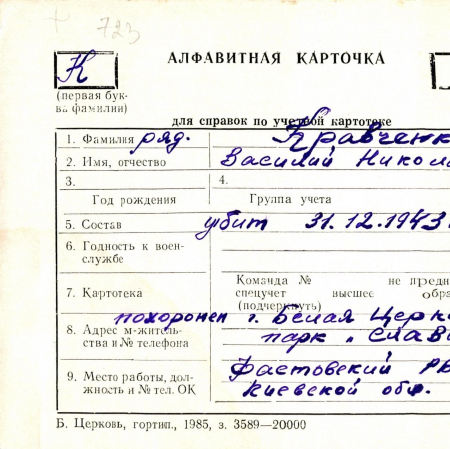 723
К
АЛФАВИТНАЯ КАРТОЧКА
(первая бук-
ва фамилии)
для справок по учетной картотеке
1. Фамилия ряд. Кравченк
2. Имя, отчество Василий Никола
3. 4.
Год рождения Группа учета
5. Состав убит 31.12.1943
6. Годность к воен-
службе
Команда № не предн
7. Картотека спецучет высшее обра
(подчеркнуть)
похоронен г. Белая Церк
8. Адрес м-житель-
ства и № телефона парк "Слав
Фастовский РВ
9. Место работы, дол-
жность и № тел. ОК Киевской обл.
Б. Церковь, гортип., 1985, з. 3589—20000